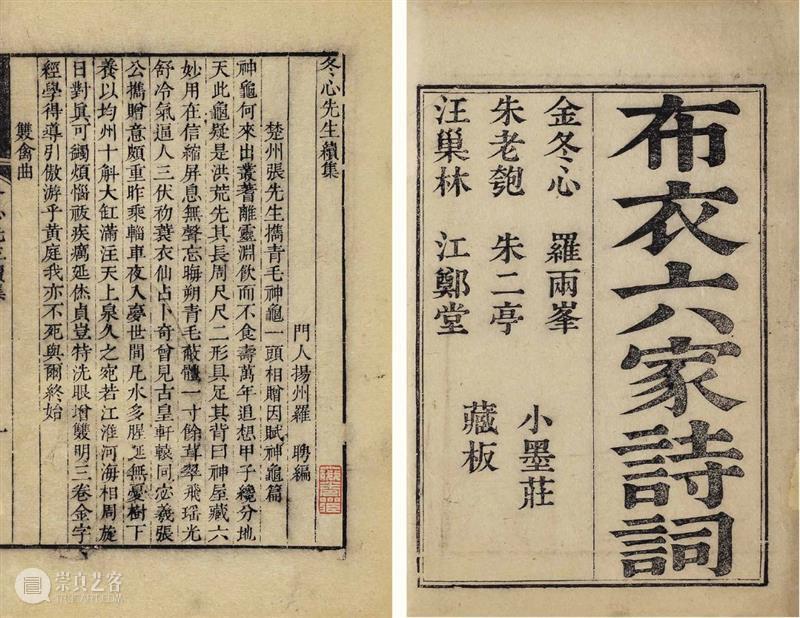 布衣六家詩詞
金冬心 羅兩峯
朱老匏 朱二亭
汪巢林 江鄭堂
小墨莊
藏板
冬心先生續集
門人揚州羅 聘編
楚州張先生擕青毛神龜一頭相贈因賦神龜篇
神龜何來出叢蓍離靈淵飲而不食壽萬年追想甲子纔分地
天此龜疑是洪荒先其長周尺尺二形具足其背曰神屋藏六
妙用在信縮屏息無聲忘晦朔青毛一寸餘茸翠飛瑤光
舒冷氣逼人三伏蓑衣仙占卜奇曾見古皇軒轅同宓羲張
公擕贈意頗重昨乘輜車夜入夢世間凡水多腥涎無憂樹下
養以均州十斛大缸滿汪天上泉久之宛若江淮河海相周旋
日對眞可蠲煩惱祓疾癘延休貞豈特洗眼增雙明三卷金字
經學得導引傲游乎黃庭我亦不死與爾終始
雙禽曲
崇真艺客